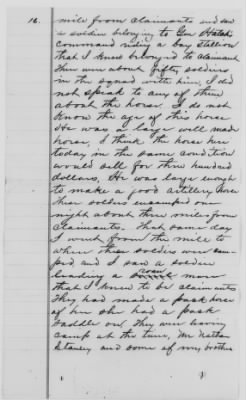 16.
mile from claimants and saw
a soldier belonging to Gen Hatch
command riding a bay stallion
that I knew belonged to claimant
There were about fifty soldiers
in the squad with him, I did
not speak to any of them
about the horse. I do not
know the age of this horse
He was a large well made
horse, I think the horse here
today in the same condition
would sell for three hundred
dollars, He was large enough
to make a good artillery horse
These soldiers encamped one
night about three miles from
claimants. That same day
I went from the mill to
where these soldiers were cam-
ped and I saw a soldier
leading a roan mare
that I knew to be claimants
They had made a pack horse
of her she had a pack
saddle on, They were leaving
camp at the time, Mr Nathan
Stancy and some of my brothers